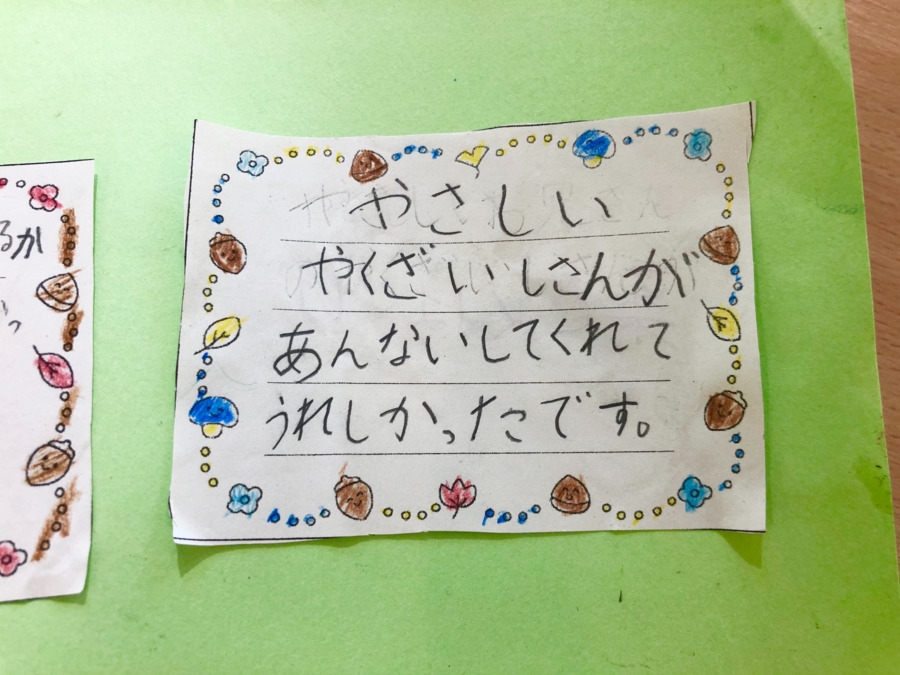 るか
っ
やさしい
やくざいしさんが
あんないしてくれて
うれしかったです。